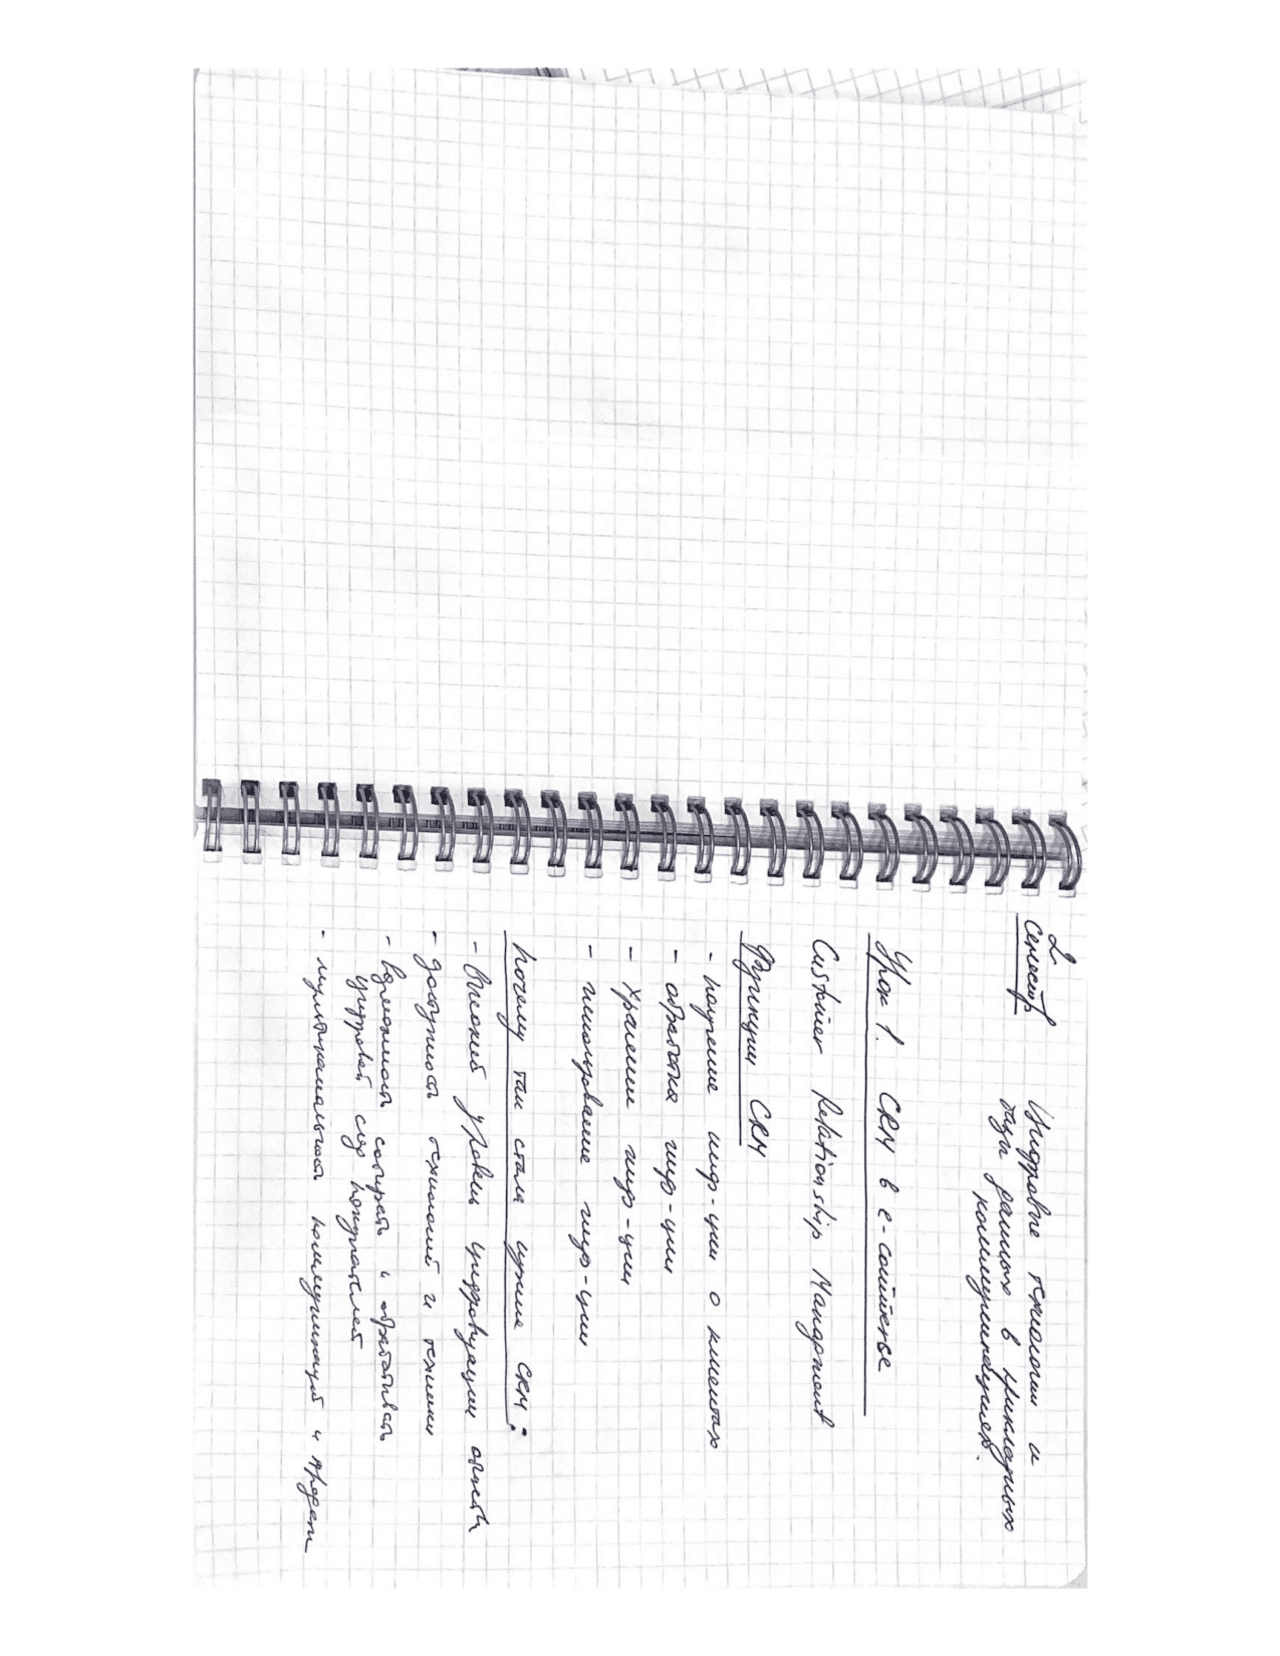 2 семестр
Цифровые технологии и
базы данных в прикладных
коммуникациях.
Урок 1. CRM в e-commerse
Custumer Relationship Managment
Функции CRM
- получение инф-ции о клиентах
- обработка инф-ции
- хранение инф-ции
- использование инф-ции
Почему так стала нужна CRM:
- Высокий уровень цифровизации
- доступность технологий и техники
- Возможность собирать и обрабатывать
цифровой след покупателей
- мультиканальность коммуникаций и продаж